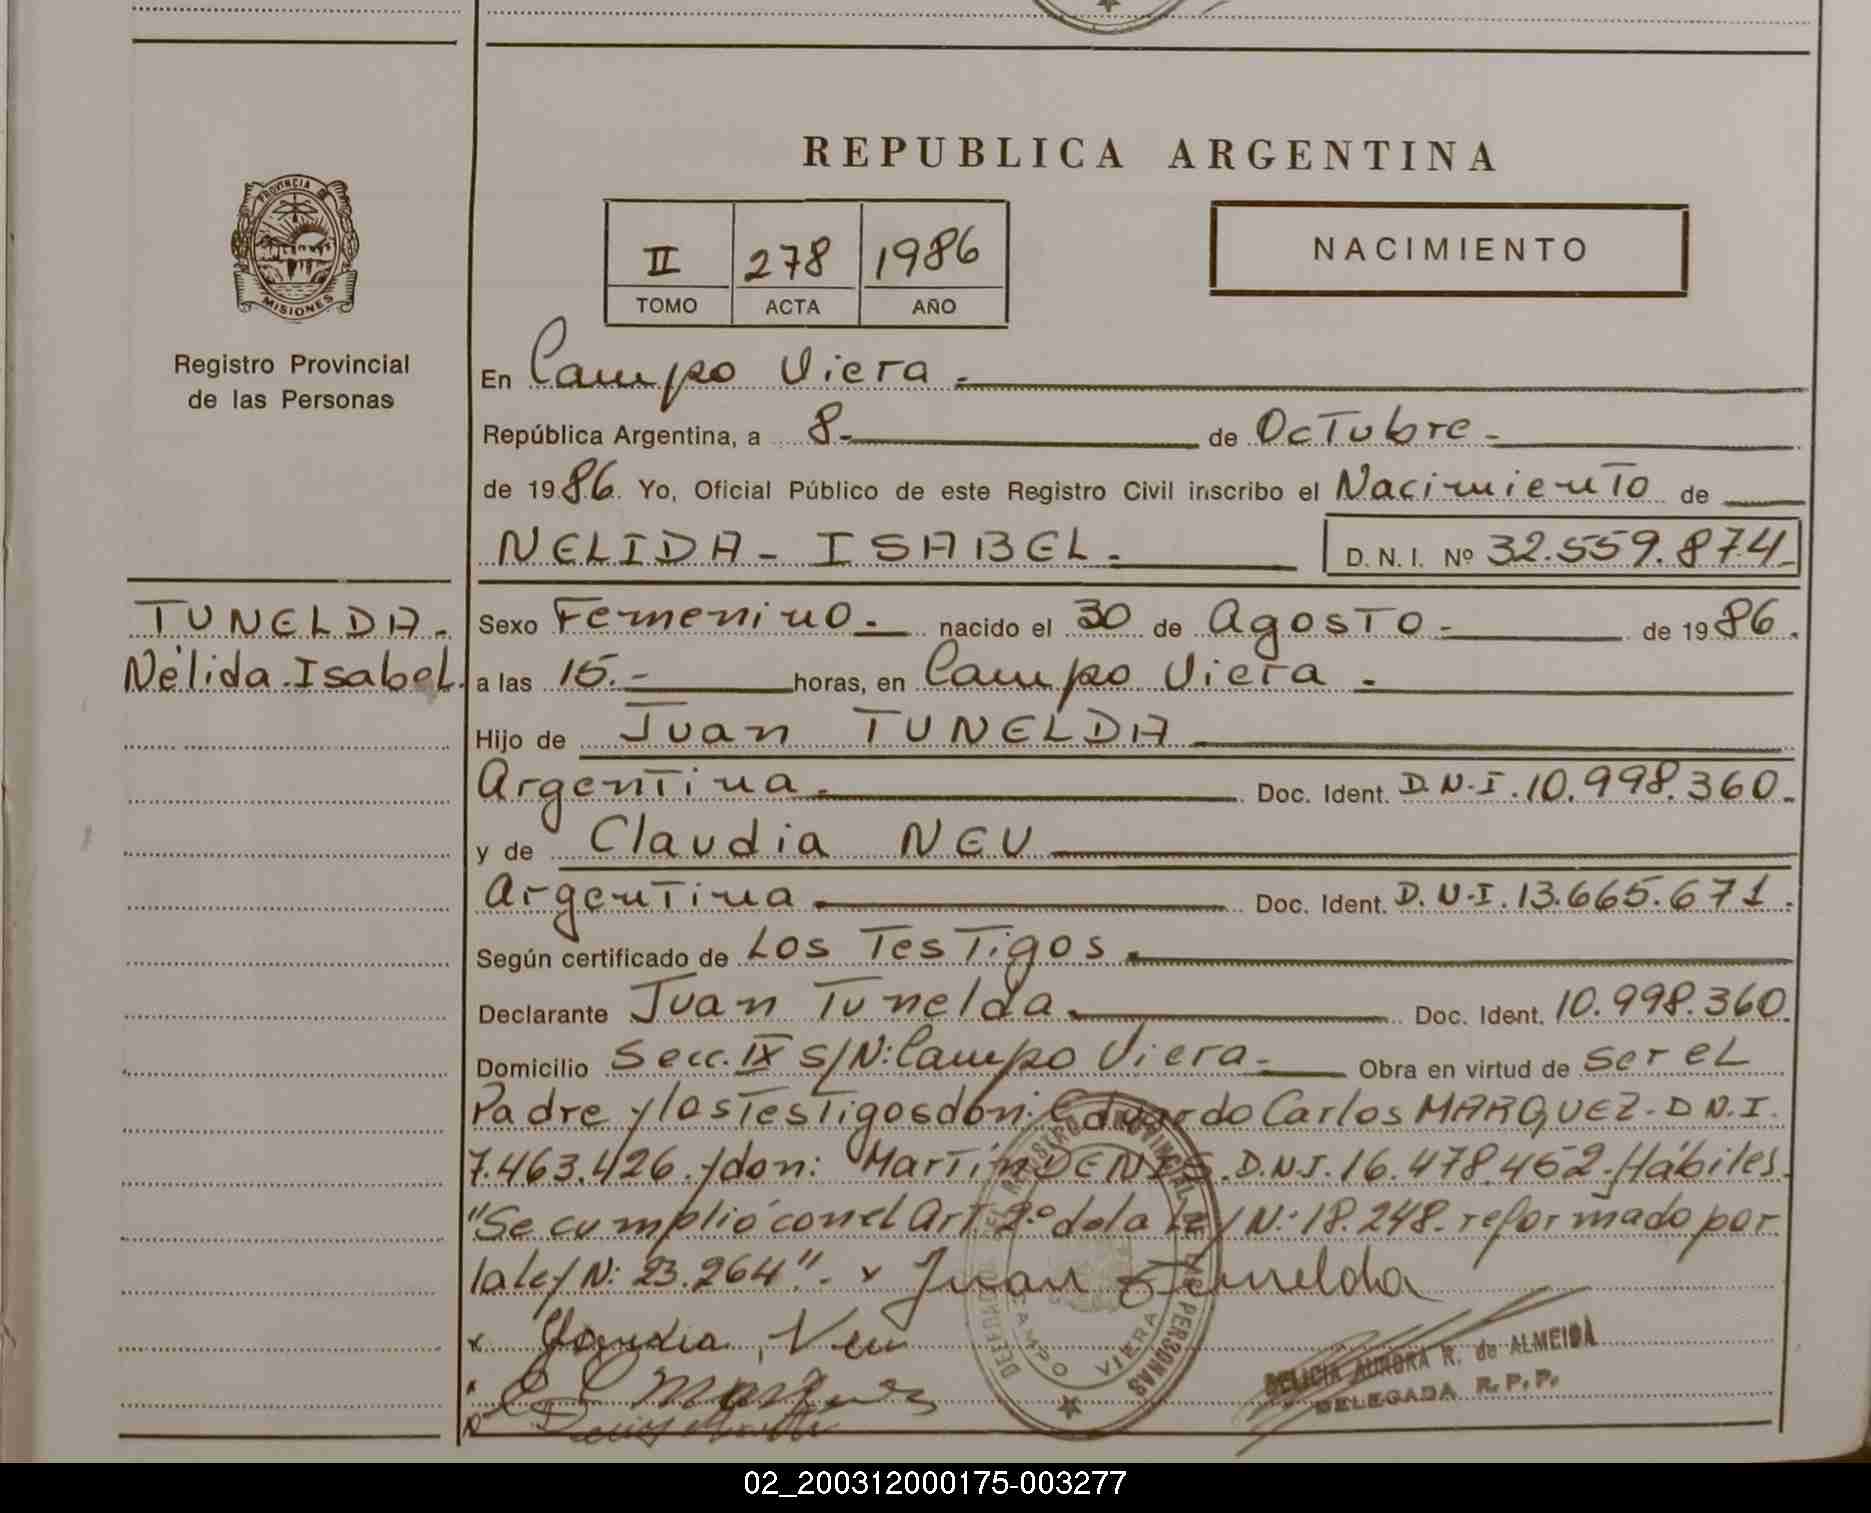 REPUBLICA ARGENTINA
PROVINCIA DE
MISIONES
Registro Provincial
de las Personas
II 278 1986
TOMO ACTA AÑO
NACIMIENTO
En Campo Viera.
República Argentina, a 8- de Octubre-
de 1986. Yo, Oficial Público de este Registro Civil inscribo el Nacimiento de
NELIDA - ISABEL. D. N. I. Nº 32.559.874-
TUNELDA.
Nélida Isabel.
Sexo Femenino.- nacido el 30 de Agosto- de 1986.
a las 15.- horas, en Campo Viera.
Hijo de Juan TUNELDA
Argentina. Doc. Ident. D.N.I. 10.998.360.
y de Claudia NEU
Argentina Doc. Ident. D.N.I. 13.665.671.
Según certificado de Los Testigos.
Declarante Juan Tunelda. Doc. Ident. 10.998.360
Domicilio Secc. IX S/N: Campo Viera- Obra en virtud de ser el
Padre y los Testigos don: Eduardo Carlos MARQUEZ - D.N.I.
7.463.426. y don: Martín DENIS. D.N.I. 16.478.452. Hábiles.
"Se cumplió con el Art. 2.º de la Ley N: 18.248. reformado por
la ley N: 23.264". x Juan Tunelda
x Claudia Neu
DELEGACION DEL REGISTRO PROVINCIAL DE LAS PERSONAS
CAMPO VIERA
DELICIA AURORA R. de ALMEIDA
DELEGADA R.P.P.
02_200312000175-003277